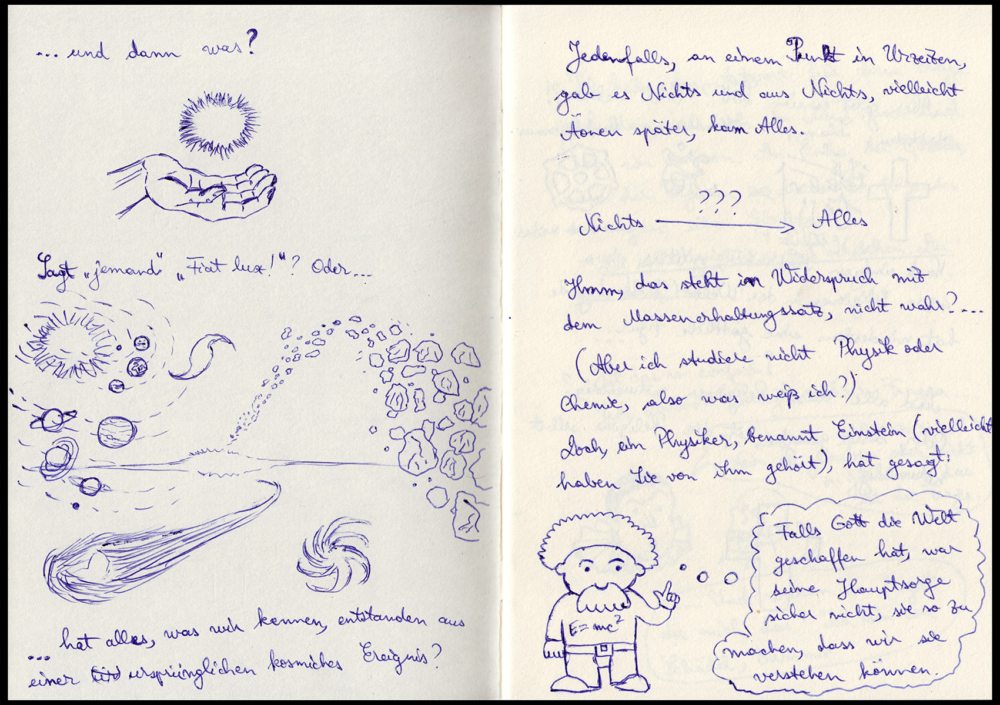 ... und dann was?
Sagt „jemand" „Fiat lux!"? Oder...
... hat alles, was wir kennen, entstanden aus
einer ursprünglichen kosmiches Ereignis?
Jedenfalls, an einem Punkt in Urzeiten,
gab es Nichts und aus Nichts, vielleicht
Äonen später, kam Alles.
???
Nichts → Alles
Hmm, das steht im Widerspruch mit
dem Massenerhaltungssatz, nicht wahr?...
(Aber ich studiere nicht Physik oder
Chemie, also was weiß ich?)
Doch, ein Physiker, benannt Einstein (vielleicht
haben Sie von ihm gehört), hat gesagt:
Falls Gott die Welt
geschaffen hat, war
seine Hauptsorge
sicher nicht, sie so zu
machen, dass wir sie
verstehen können.
E=mc²